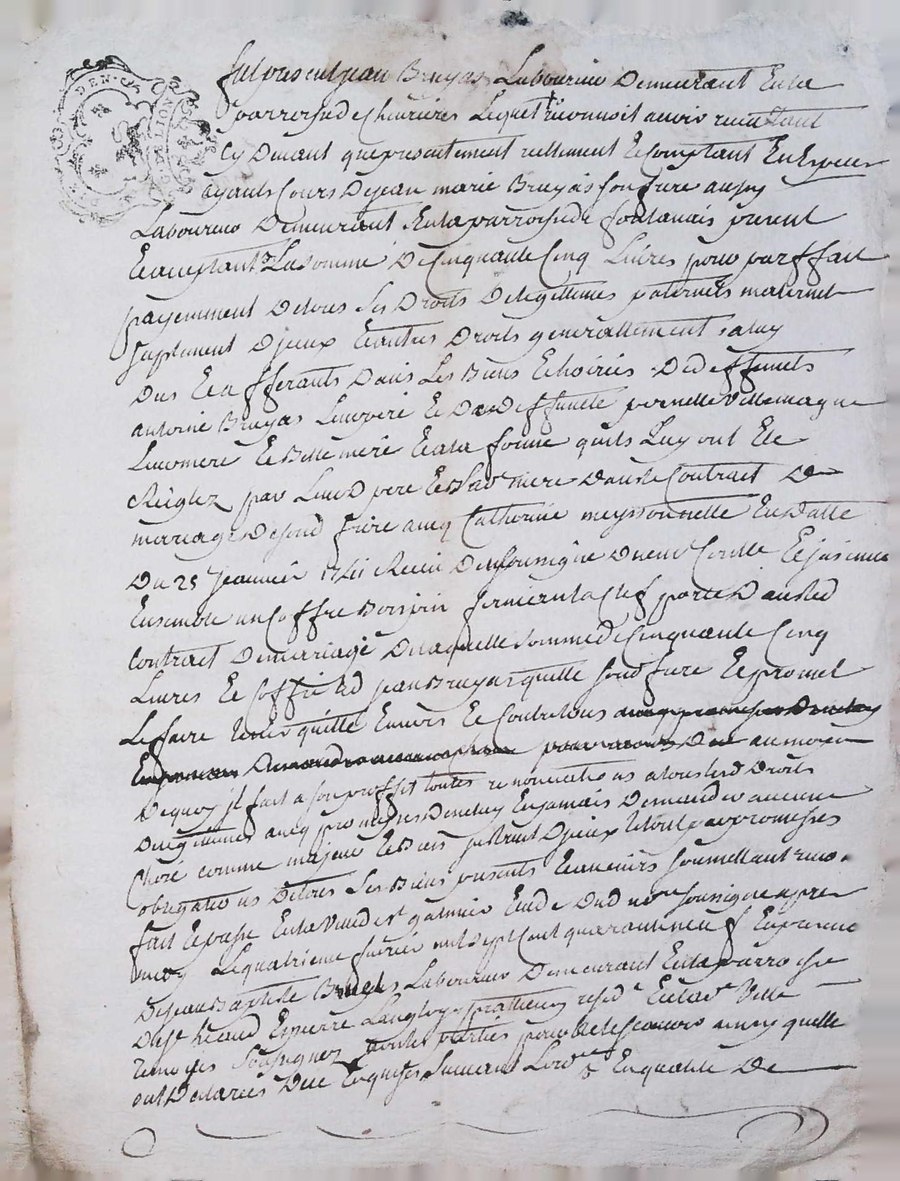 DEN. C
LION
fut present jean Bruyas Laboureur Demeurant En la
parroisse de Chevrieres Lequel reconnoit avoir receu tant
Cy Devant que presentement reellement Et Comptant En Especes
ayants Cours De jean marie Bruyas son frere aussy
Laboureur Demeurant En la parroisse de fontanais present
Et acceptant La somme De Cinquante Cinq Livres pour parffait
payemment De tous Ses Droits De legitimes paternels maternels
suplement D'jceux Et autres Droits generallement a luy
Dus Et afferants Dans Les Biens Et hoiries De deffuncts
antoine Bruyas Leur pere Et De deffuncte pernette Villemagne
Leur mere Et Belle mere Et a la forme quils Luy ont Ete
Reiglez par Leurd pere Et mere Dans le Contract De
mariage De sond frere avecq Catherine meyssonnelle En Datte
Du 25 Jeanvier 1741 Receu Dem soussigne Dheure Conttle Et jnsinue
Ensemble un Coffre Bois pin fermant a Clef porté Dans led
Contract De marriage De laquelle somme de Cinquante Cinq
Livres Et Coffre led jean Bruyas quitte sond frere Et promet
Le faire tenir quitte Envers Et Contre tous
au moyen
De quoy jl fait a son proffit toutes renonciations a tous lesd Droits
De legitimes avecq promesses De ne luy En jamais Demander aucune
Chose comme majeur Et Bien jnstruit D'jceux Le tout par promesses
obligations De tous Ses Biens presents Et avenirs soumettant reno.
fait Et passe En la Ville de st galmier Etude Dud nore soussigne apres
midy Le quatrieme fevrier mil sept Cent quarante neuf En presence
De jean Baptiste Laboureur Demeurant En la parroisse
De st heand Et pierre Langlois praticien resid En lad Ville
temoins Soussignez non les parties pour ne le scavoir ainsy quelle
ont Declarées De ce Enquises suivant Lordce En qualité De